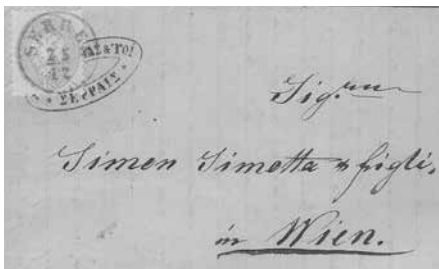 SERRE
25
12
ΣΕΡΡΑΙΣ
Sig.rm
Simon Simotta & figli,
in Wien.